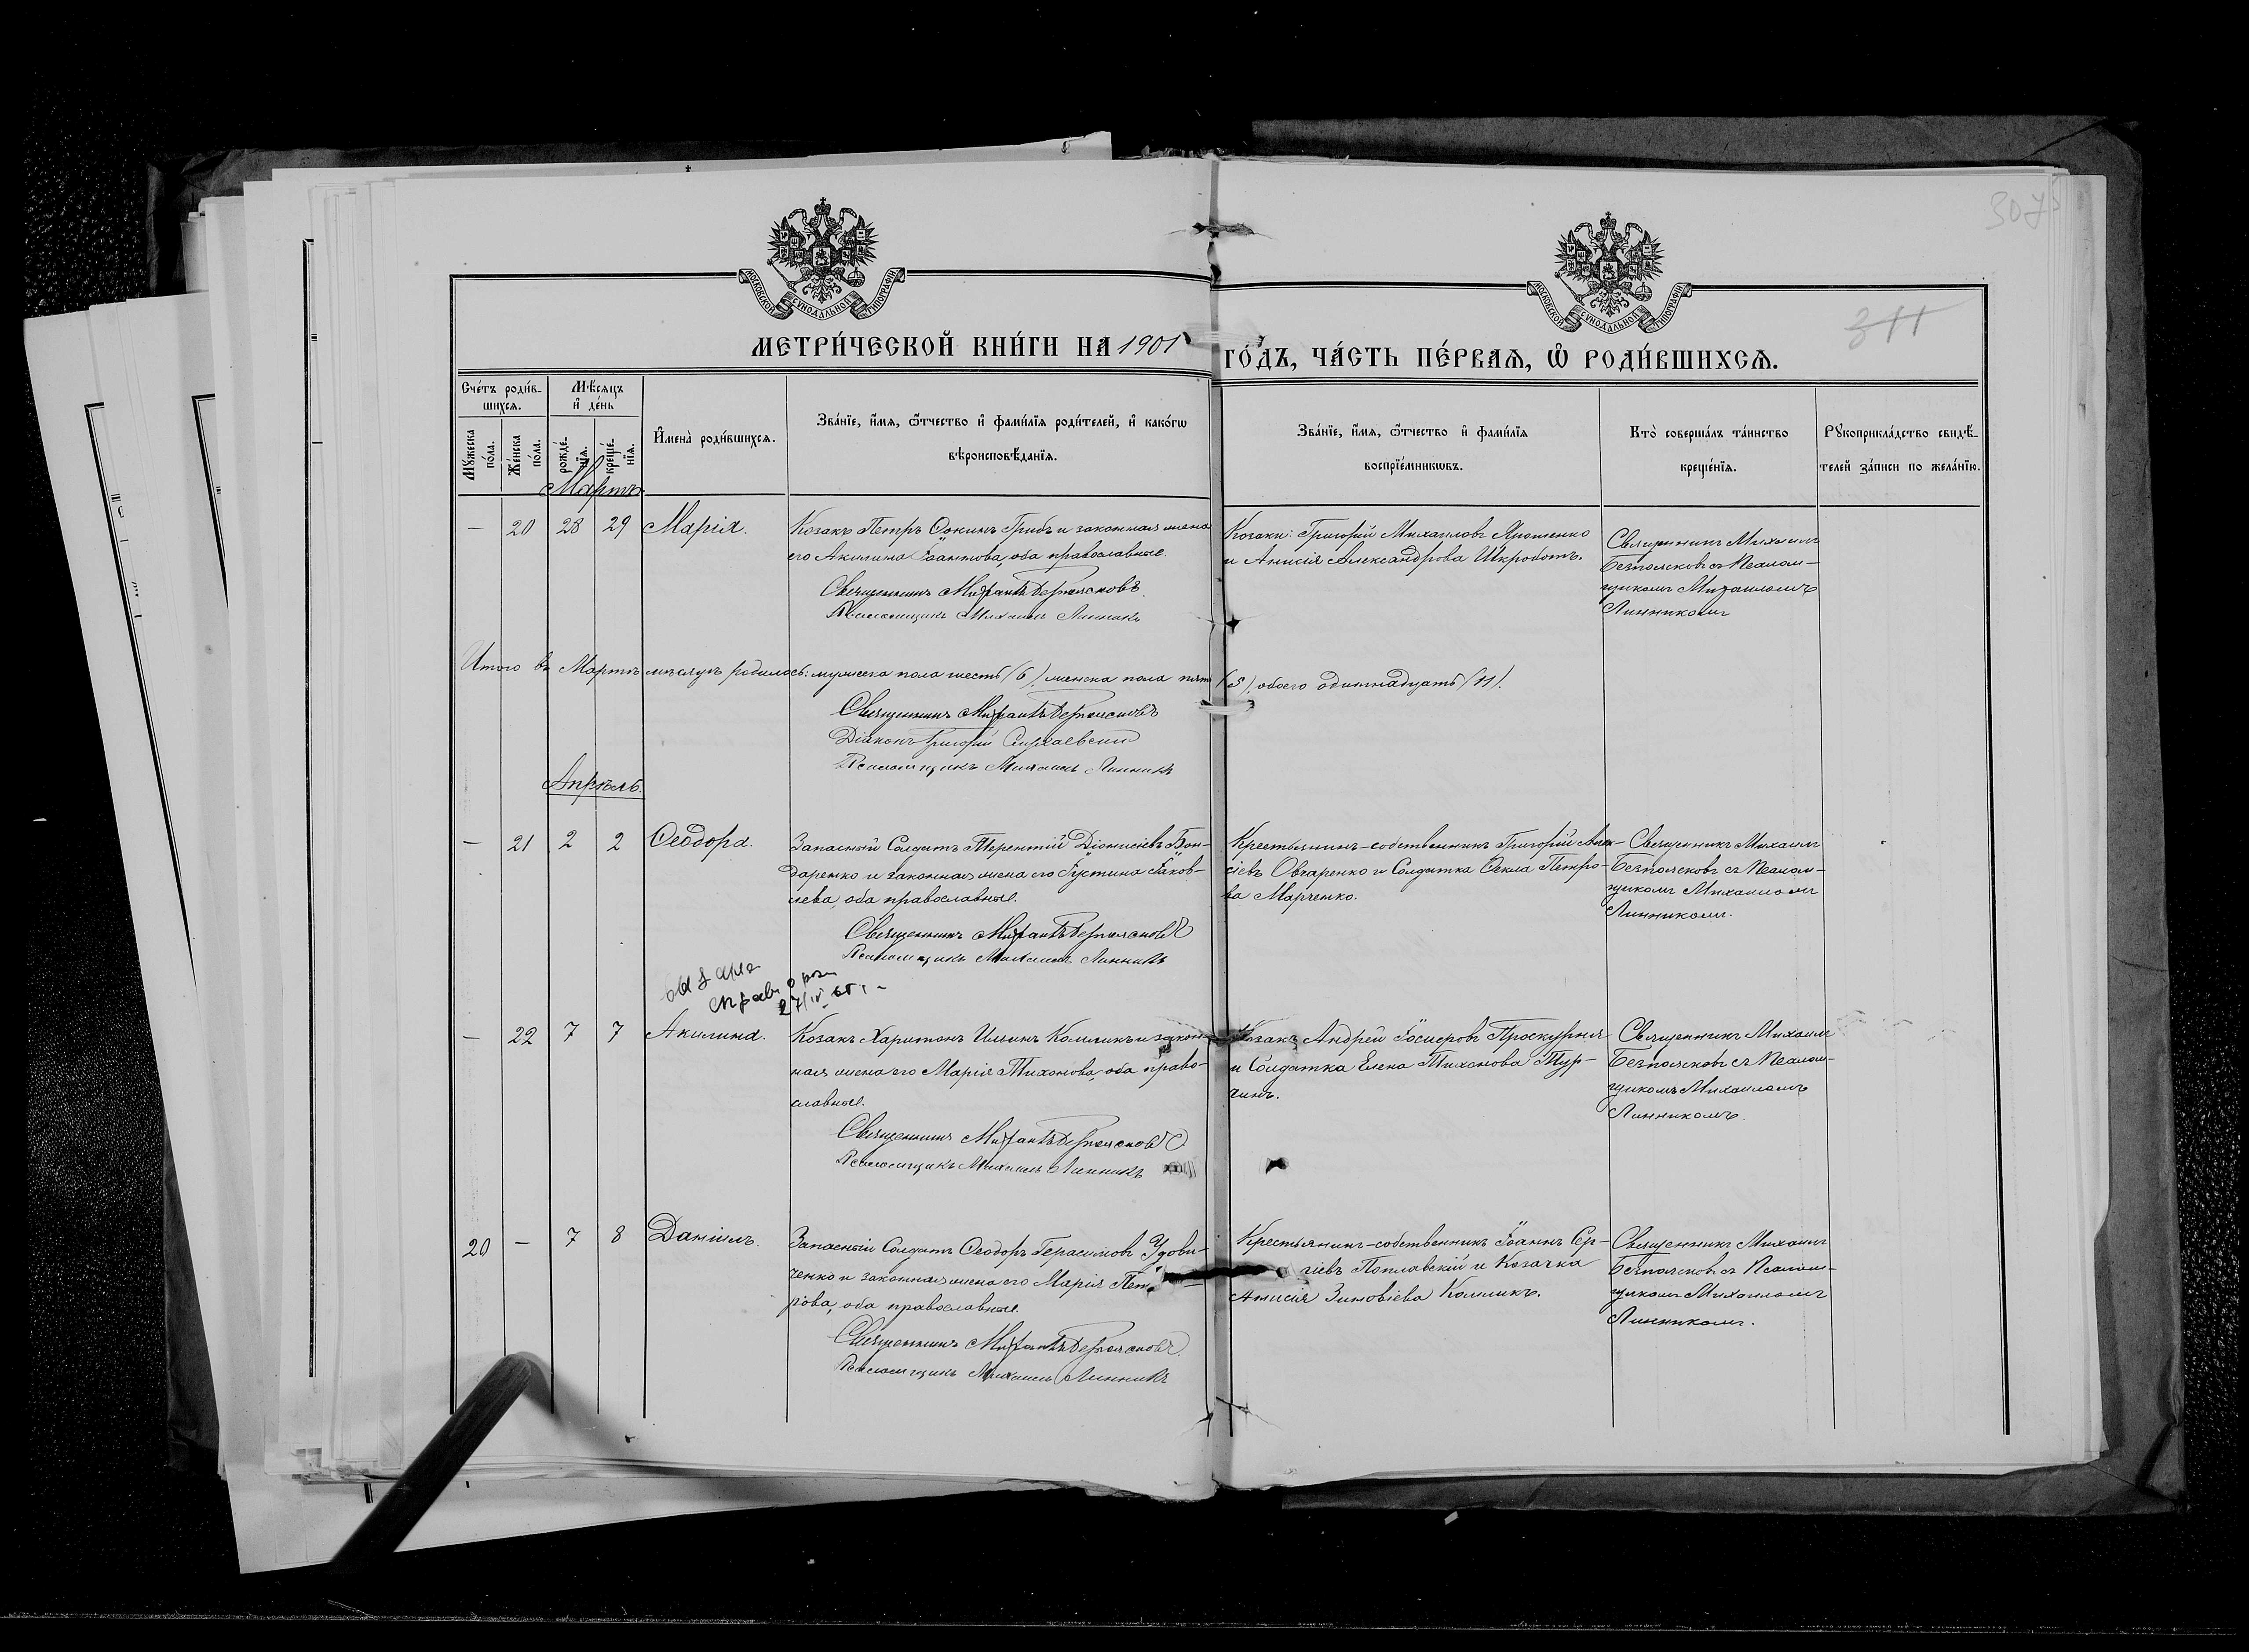 307
311
МОСКОВСКОЙ СѴНОДАЛЬНОЙ ТИПОГРАФІИ
МОСКОВСКОЙ СѴНОДАЛЬНОЙ ТИПОГРАФІИ
МЕТРИ́ЧЕСКОЙ КНИ́ГИ НА 1901 ГО́ДЪ, ЧА́СТЬ ПЕ́РВАѦ, Ѡ҆ РОДИ́ВШИХСѦ.
Сче́тъ роди́в-
шихсѧ.
Мꙋ́жеска
по́ла.
Же́нска
по́ла.
Мѣ́сѧцъ
и҆ де́нь
рожде́-
нїѧ.
креще́-
нїѧ.
И҆мена̀ роди́вшихсѧ.
Зва́нїе, и҆́мѧ, ѻ҆́тчество и҆ фами́лїѧ роди́телей, и҆ како́гѡ
вѣроисповѣ́данїѧ.
Зва́нїе, и҆́мѧ, ѻ҆́тчество и҆ фами́лїѧ
воспрїе́мникѡвъ.
Кто̀ соверша́лъ та́инство
креще́нїѧ.
Рꙋкоприкла́дство свидѣ́-
телей за́писи по жела́нїю.
Мартъ
— 20 28 29 Марія.
Козакъ Петръ Ѳокинъ Грибъ и законная жена
его Акилина оба православные.
Священникъ Михаилъ Безпоясковъ
Псаломщикъ Михаилъ Линникъ
Козаки: Григорій Михаиловъ
и Анисія Александрова Шкроботъ.
Священникъ Михаилъ
Безпоясковъ съ Псалом-
щикомъ Михаиломъ
Линникомъ
Итого въ Мартѣ мѣсяцѣ родилось: мужеска пола шесть (6), женска пола пять (5), обоего одиннадцать (11).
Священникъ Михаилъ Безпоясковъ
Діаконъ Григорій
Псаломщикъ Михаилъ Линникъ
Апрѣль.
— 21 2 2 Ѳеодора.
Запасный Солдатъ Терентій Діонисіевъ Бон-
даренко и законная жена его Іустина Іаков-
лева, оба православные.
Священникъ Михаилъ Безпоясковъ
Псаломщикъ Михаилъ Линникъ
Крестьянинъ-собственникъ Григорій Алек-
сіевъ Овчаренко и Солдатка Ѳекла Петро-
ва Марченко.
Священникъ Михаилъ
Безпоясковъ съ Псалом-
щикомъ Михаиломъ
Линникомъ.
27/IV 65 г.
— 22 7 7 Акилина.
Козакъ Харитонъ Ильинъ Комликъ и закон-
ная жена его Марія Тихонова, оба право-
славные.
Священникъ Михаилъ Безпоясковъ
Псаломщикъ Михаилъ Линникъ
Козакъ Андрей Іосифовъ Проскурня
и Солдатка Елена Тихонова Тур-
чинъ.
Священникъ Михаилъ
Безпоясковъ съ Псалом-
щикомъ Михаиломъ
Линникомъ.
20 — 7 8 Даніилъ.
Запасный Солдатъ Ѳеодоръ Герасимовъ Удови-
ченко и законная жена его Марія Пет-
рова, оба православные.
Священникъ Михаилъ Безпоясковъ
Псаломщикъ Михаилъ Линникъ
Крестьянинъ-собственникъ Іоаннъ Сер-
гіевъ Поплавскій и Козачка
Анисія Зиновіева Комликъ.
Священникъ Михаилъ
Безпоясковъ съ Псалом-
щикомъ Михаиломъ
Линникомъ.